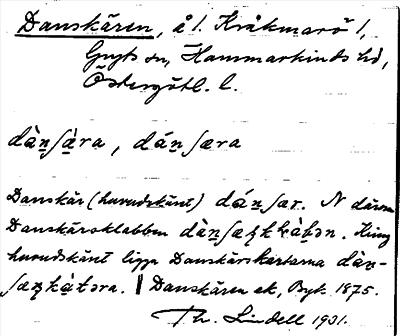 Danskären, å l. Kråkmarö l,
Gryts sn, Hammarkinds hd,
Östergötl. l.
dàṉʃæ̀ra, dáṉʃæra
Danskär (huvudskäret) dáṉʃær. N därom
Danskärsklabben dàṉʃæʐkḱàb̥ən. Kring
huvudskäret ligga Danskärskartarna dàṉ-
ʃæʐkàtəra. | Danskären ek, 1875.
Th. Lindell 1931.